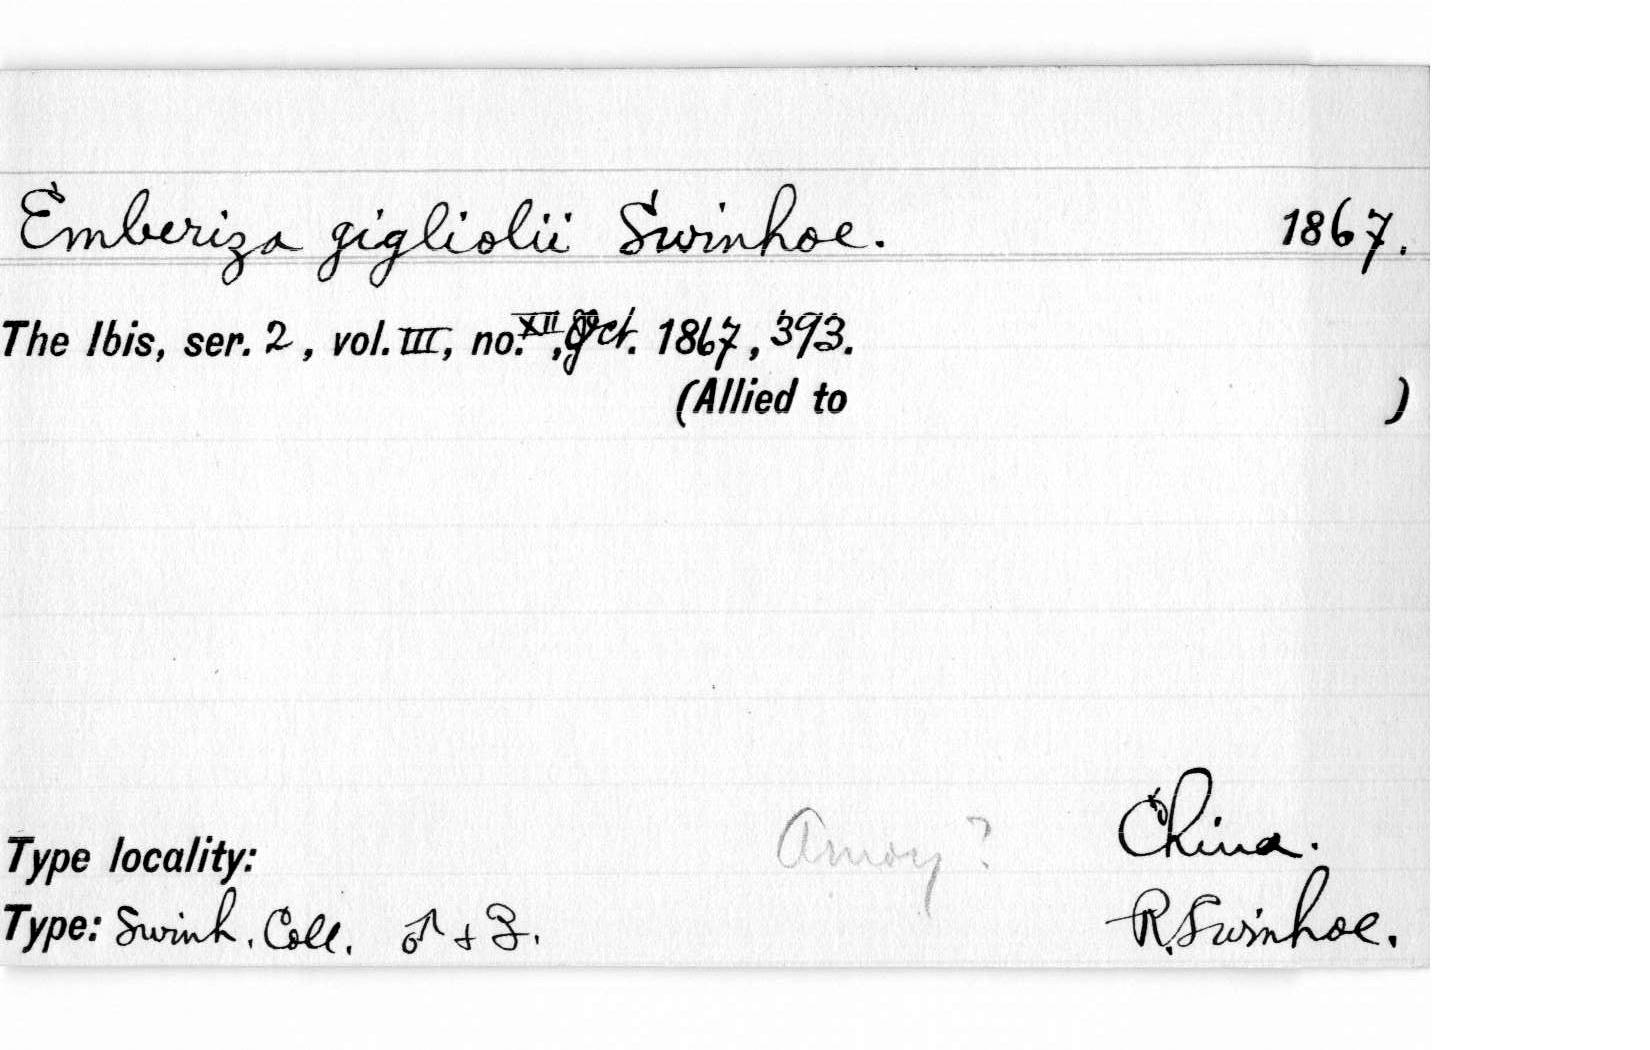 Emberiza gigliolii Swinhoe. 1867.
The Ibis, ser. 2, vol. III, no. XII, Oct. 1867, 393.
(Allied to )
Type locality: Amoy? China.
Type: Swinh. Coll. ♂ + ♀. R. Swinhoe.